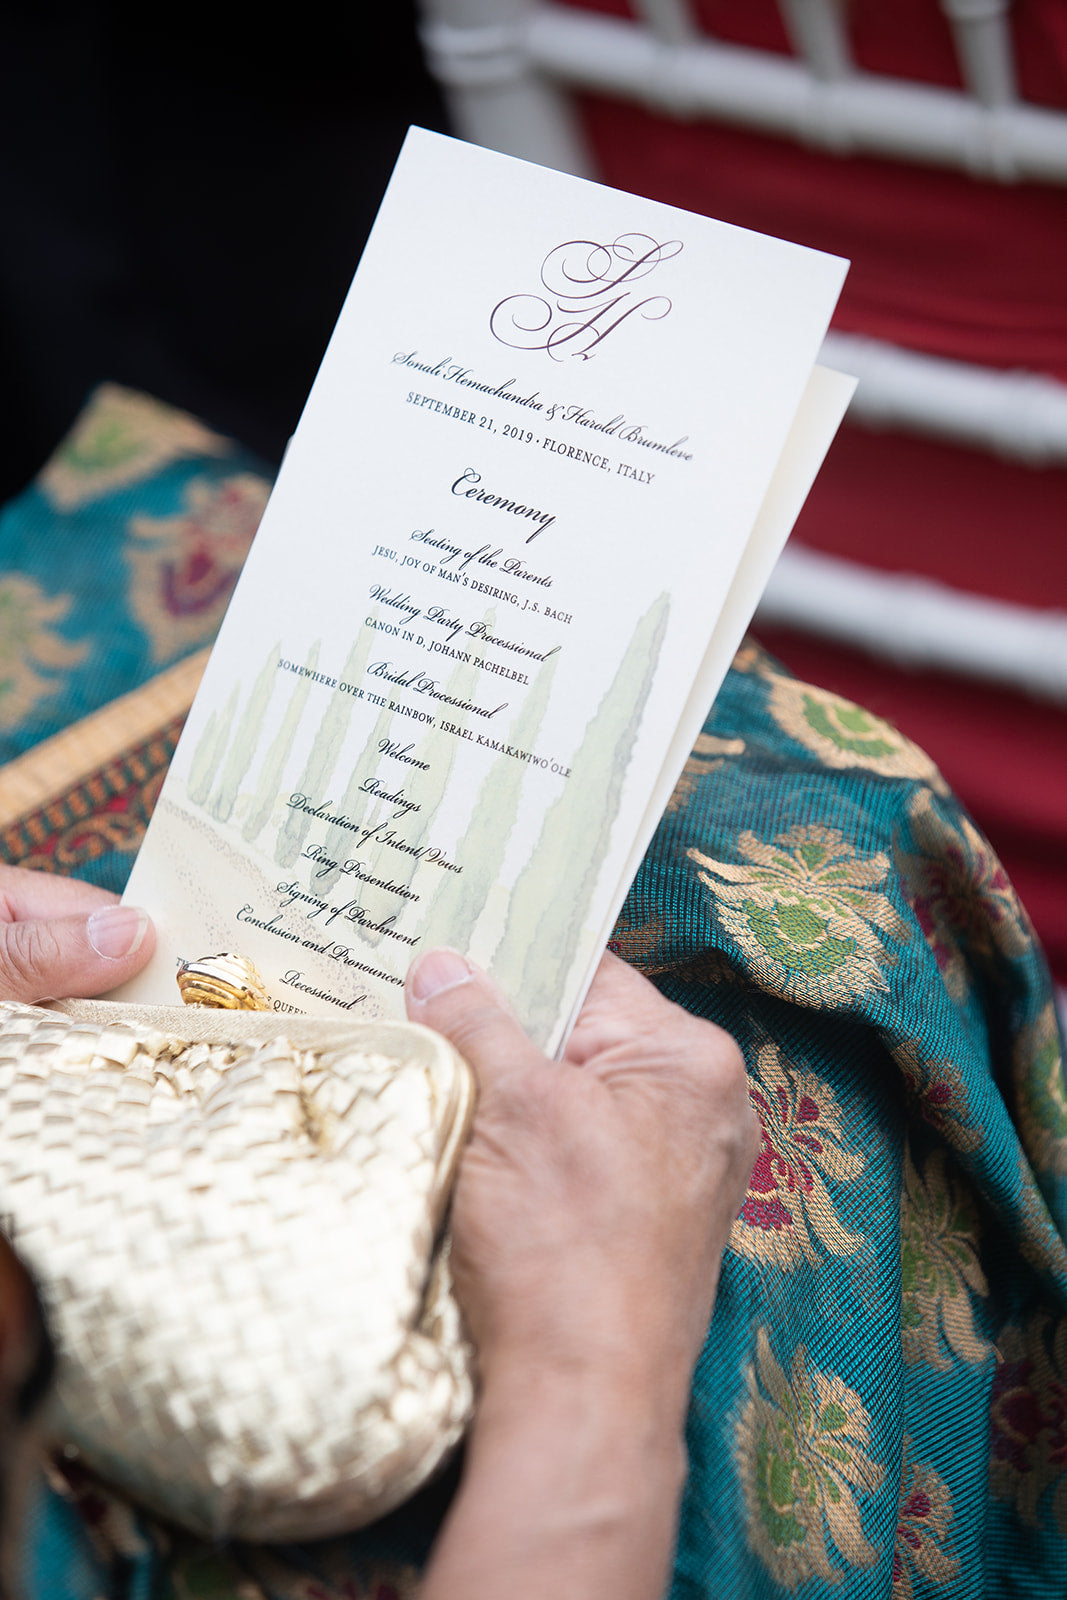 SH
Sonali Hemachandra & Harold Brumleve
SEPTEMBER 21, 2019 • FLORENCE, ITALY
Ceremony
Seating of the Parents
JESU, JOY OF MAN'S DESIRING, J.S. BACH
Wedding Party Processional
CANON IN D, JOHANN PACHELBEL
Bridal Processional
SOMEWHERE OVER THE RAINBOW, ISRAEL KAMAKAWIWO'OLE
Welcome
Readings
Declaration of Intent/Vows
Ring Presentation
Signing of Parchment
Conclusion and
Recessional